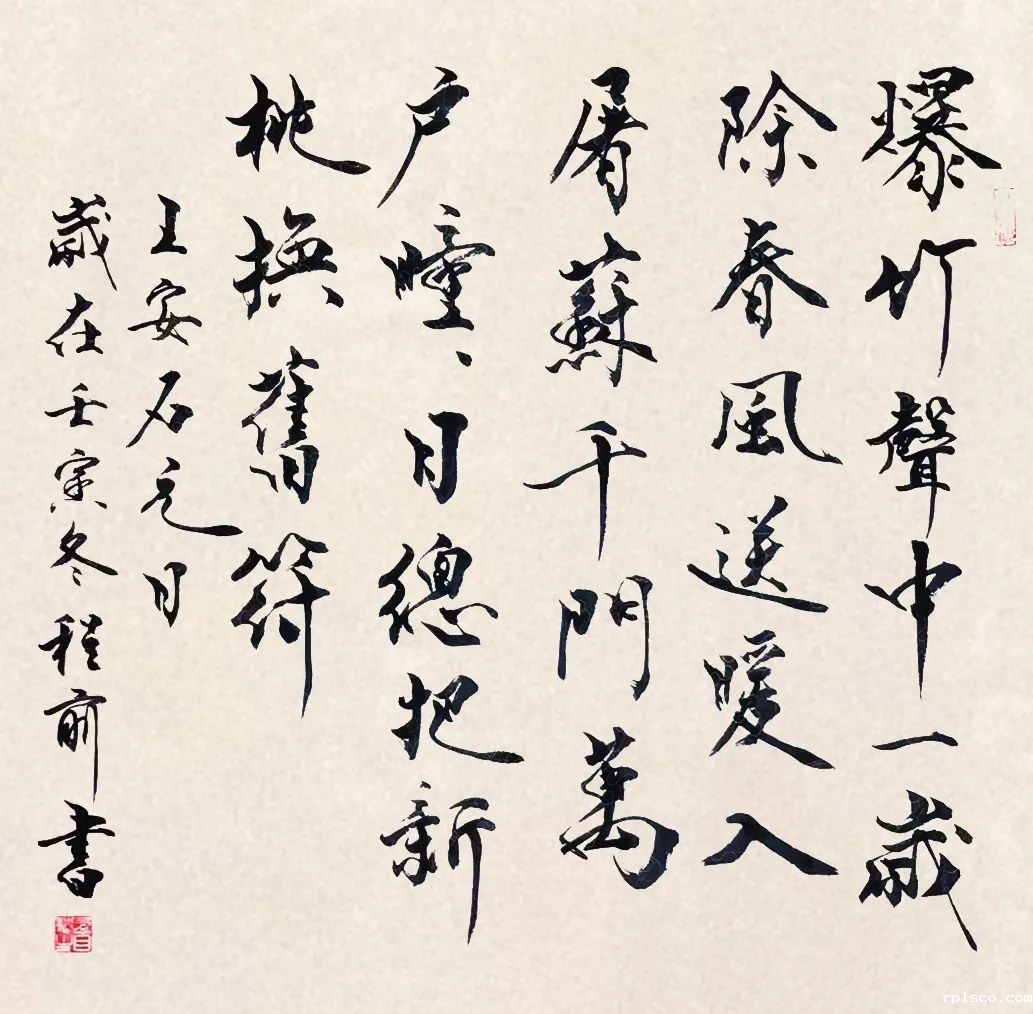 爆竹聲中一歲
除春風送暖入
屠蘇千門萬
户曈、日總把新
桃換舊符
王安石元日
歲在壬寅冬程前書
rplsco.com